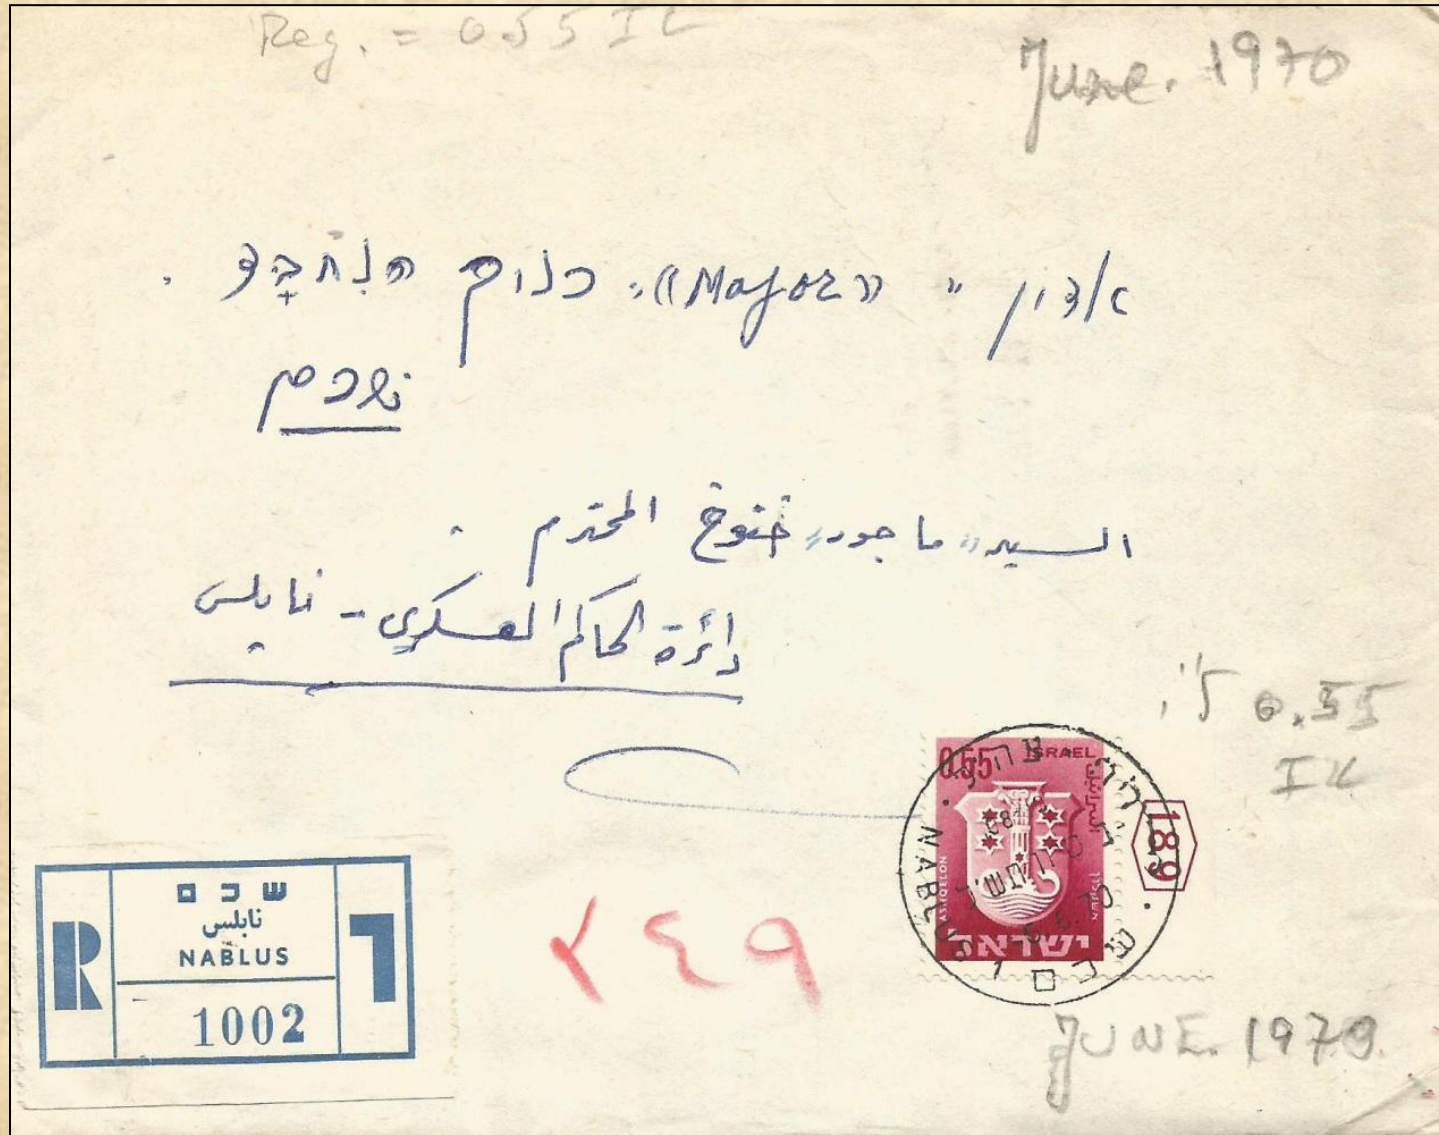 Reg. = 055 IL
June. 1970
אדון " «Major» "
שכם
السيد "ماجور" خنوخ المحترم .
دائرة الحاكم العسكري - نابلس
0.55
IL
0.55 ISRAEL
اسرائيل
ASHQELON
ישראל
NABLUS
שכם
5.6.70
189
R
שכם
نابلس
NABLUS
1002
ר
٢٤٩
JUNE. 1970.